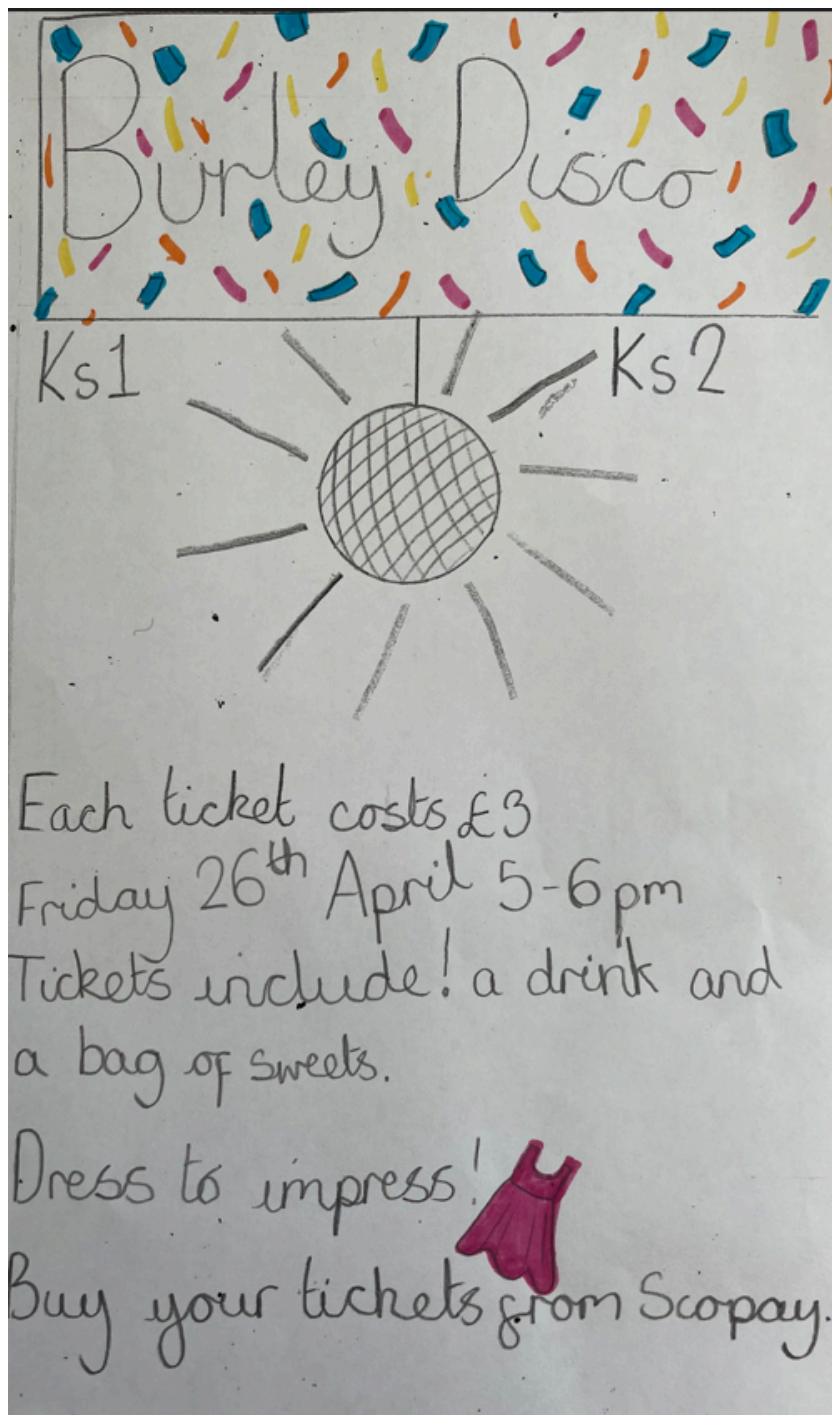 Burley Disco
Ks1 Ks2
Each ticket costs £3
Friday 26th April 5-6pm
Tickets include! a drink and
a bag of sweets.
Dress to impress!
Buy your tickets from Scopay.